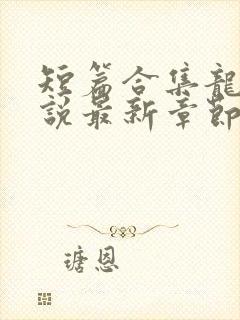 短篇合集龍
說最新章節
瑭恩